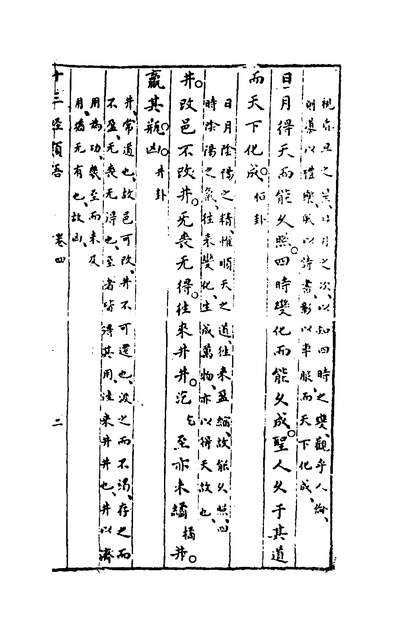 視日月之　日月之次以知四時之變觀乎人倫
則　以禮樂　以詩書彰以車服而天下化成
日月得天而能久照四時變化而能久成聖人久于其道
而天下化成 恒卦
日月陰陽之精惟順天之道往來盈縮故能久照四
時陰陽之氣往來變化生成萬物亦以得天故也
井改邑不改井无喪无得往來井井汔乞至亦未繘橘井
羸其瓶凶 井卦
井常道也故邑可改井不可遷也汲之而不渴存之而
不盈无喪无得也至者皆得其用往來井井也井以濟
用為功幾至而未及
用為无有也故凶
十三經類語 卷四 二